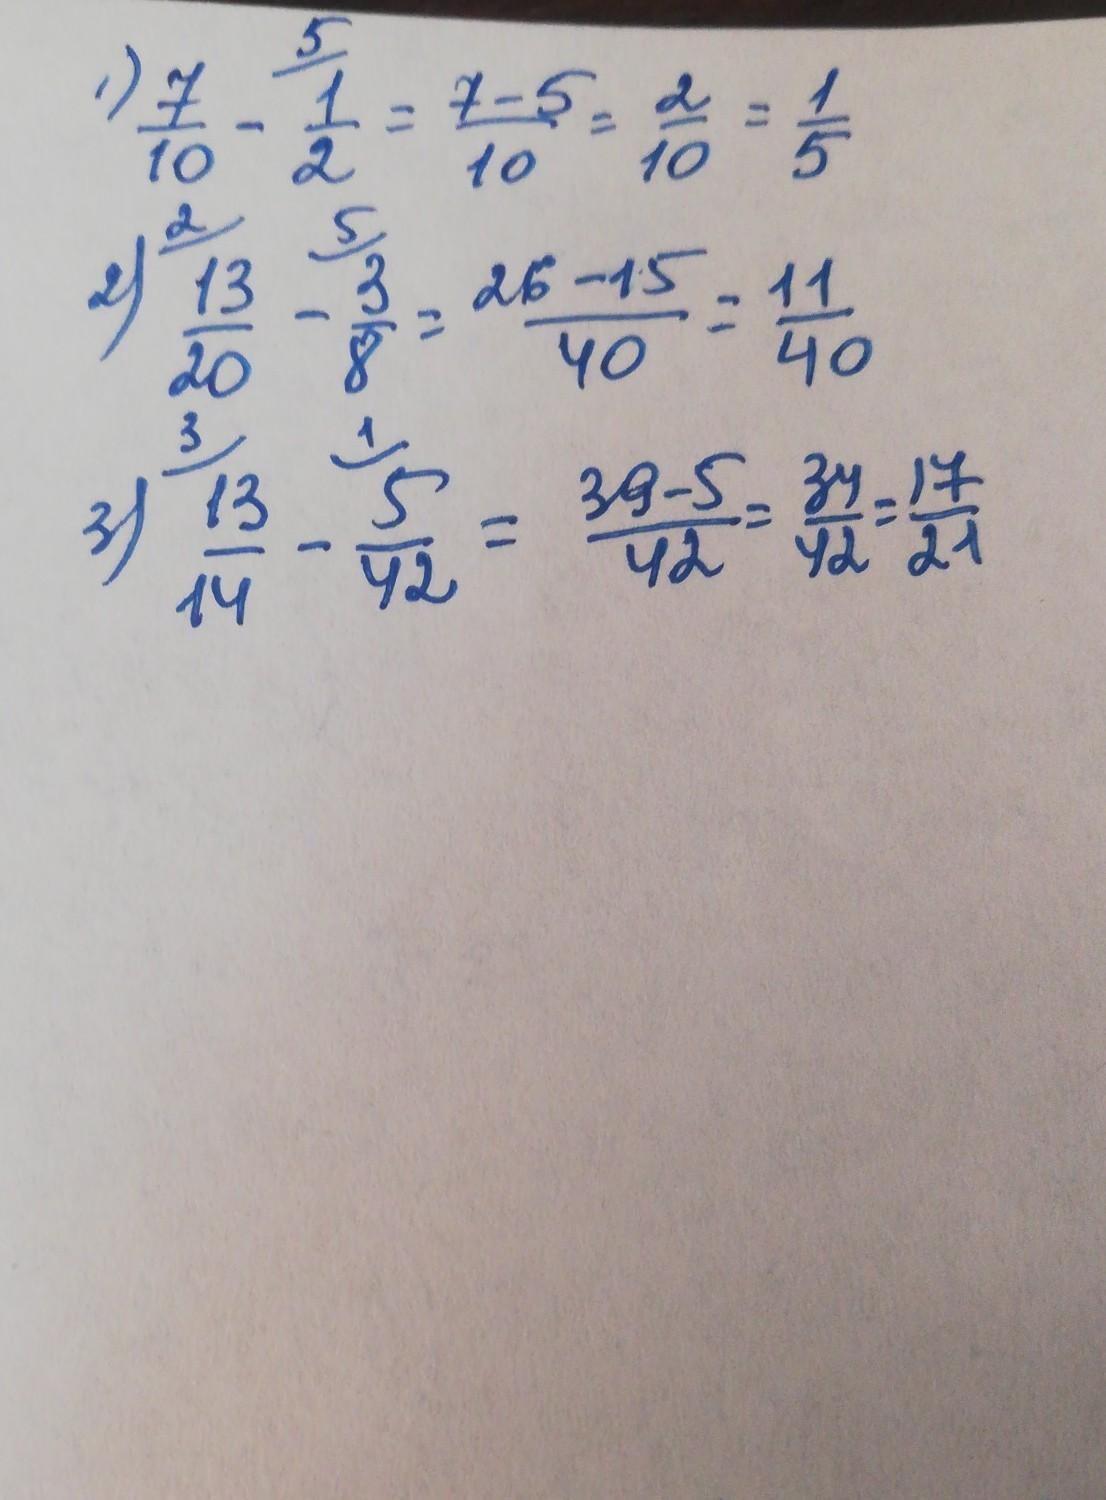 1) 7/10 - 5/ 1/2 = 7-5/10 = 2/10 = 1/5
2) 2/ 13/20 - 5/ 3/8 = 26-15/40 = 11/40
3) 3/ 13/14 - 1/ 5/42 = 39-5/42 = 34/42 = 17/21